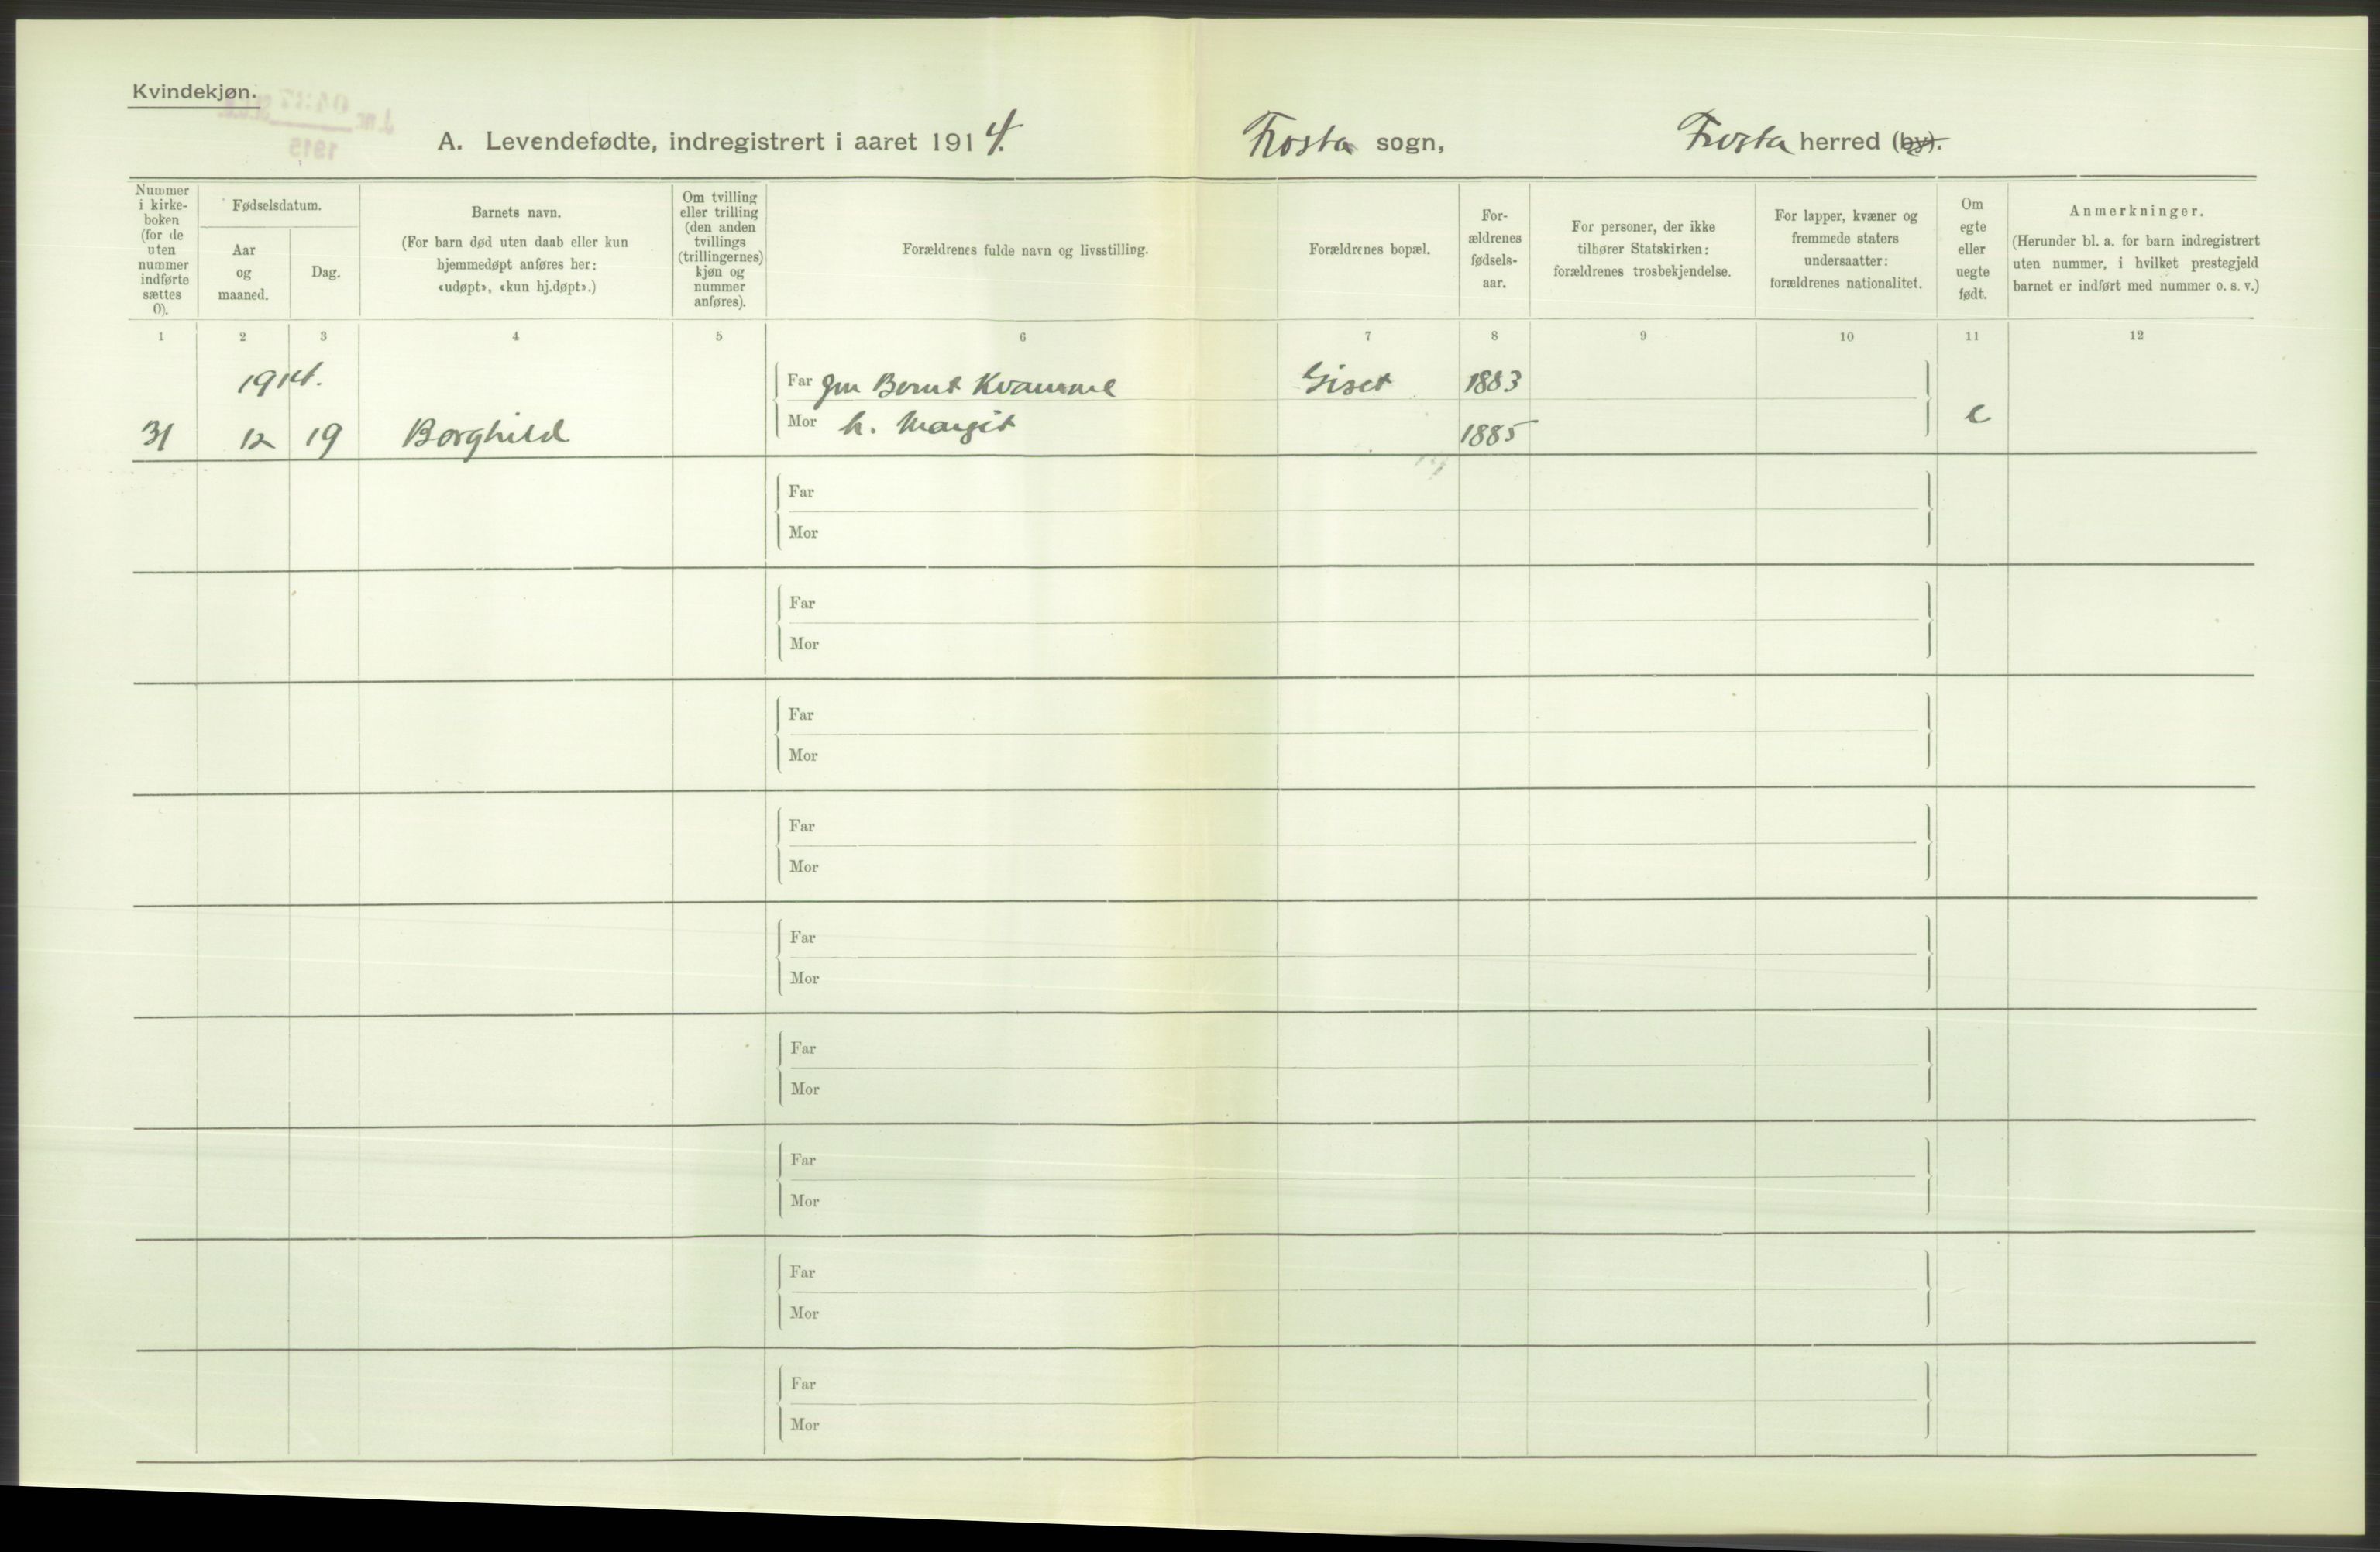 Kvindekjøn.
A. Levendefødte, indregistrert i aaret 1914.
Frosta sogn,
Frosta herred (by).
Nummer
i kirke-
boken
(for de
uten
nummer
indførte
sættes
0).
Fødselsdatum.
Aar
og
maaned.
Dag.
Barnets navn.
(For barn død uten daab eller kun
hjemmedøpt anføres her:
«udøpt», «kun hj.døpt».)
Om tvilling
eller trilling
(den anden
tvillings
(trillingernes)
kjøn og
nummer
anføres).
Forældrenes fulde navn og livsstilling.
Forældrenes bopæl.
For-
ældrenes
fødsels-
aar.
For personer, der ikke
tilhører Statskirken:
forældrenes trosbekjendelse.
For lapper, kvæner og
fremmede staters
undersaatter:
forældrenes nationalitet.
Om
egte
eller
uegte
født.
Anmerkninger.
(Herunder bl. a. for barn indregistrert
uten nummer, i hvilket prestegjeld
barnet er indført med nummer o. s. v.)
1 2 3 4 5 6 7 8 9 10 11 12
1914.
Far Bernt Kvamme Giset 1883
31 12 19 Borghild Mor h. Margit 1885 e
Far
Mor
Far
Mor
Far
Mor
Far
Mor
Far
Mor
Far
Mor
Far
Mor
Far
Mor
Far
Mor